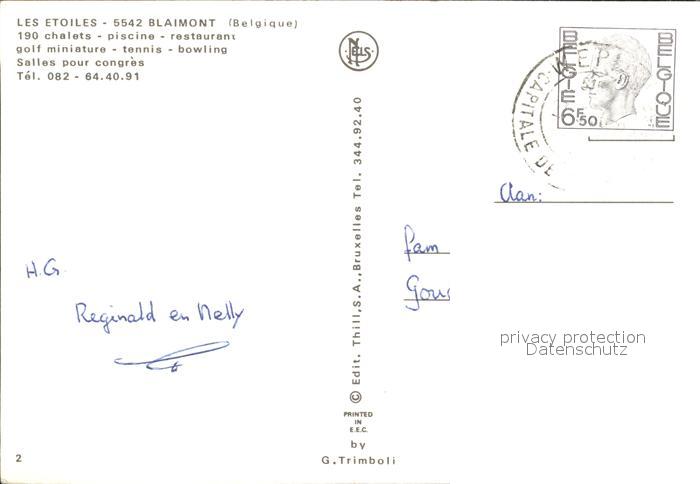 LES ETOILES - 5542 BLAIMONT (Belgique)
190 chalets - piscine - restaurant
golf miniature - tennis - bowling
Salles pour congrès
Tél. 082 - 64.40.91
NELS
BELGIE
BELGIQUE
6F50
CAPITALE DE
© Edit. Thill, S.A., Bruxelles Tel. 344.92.40
Aan:
Fam
H.G.
Reginald en Nelly
privacy protection
Datenschutz
PRINTED
IN
E.E.C.
by
G. Trimboli
2